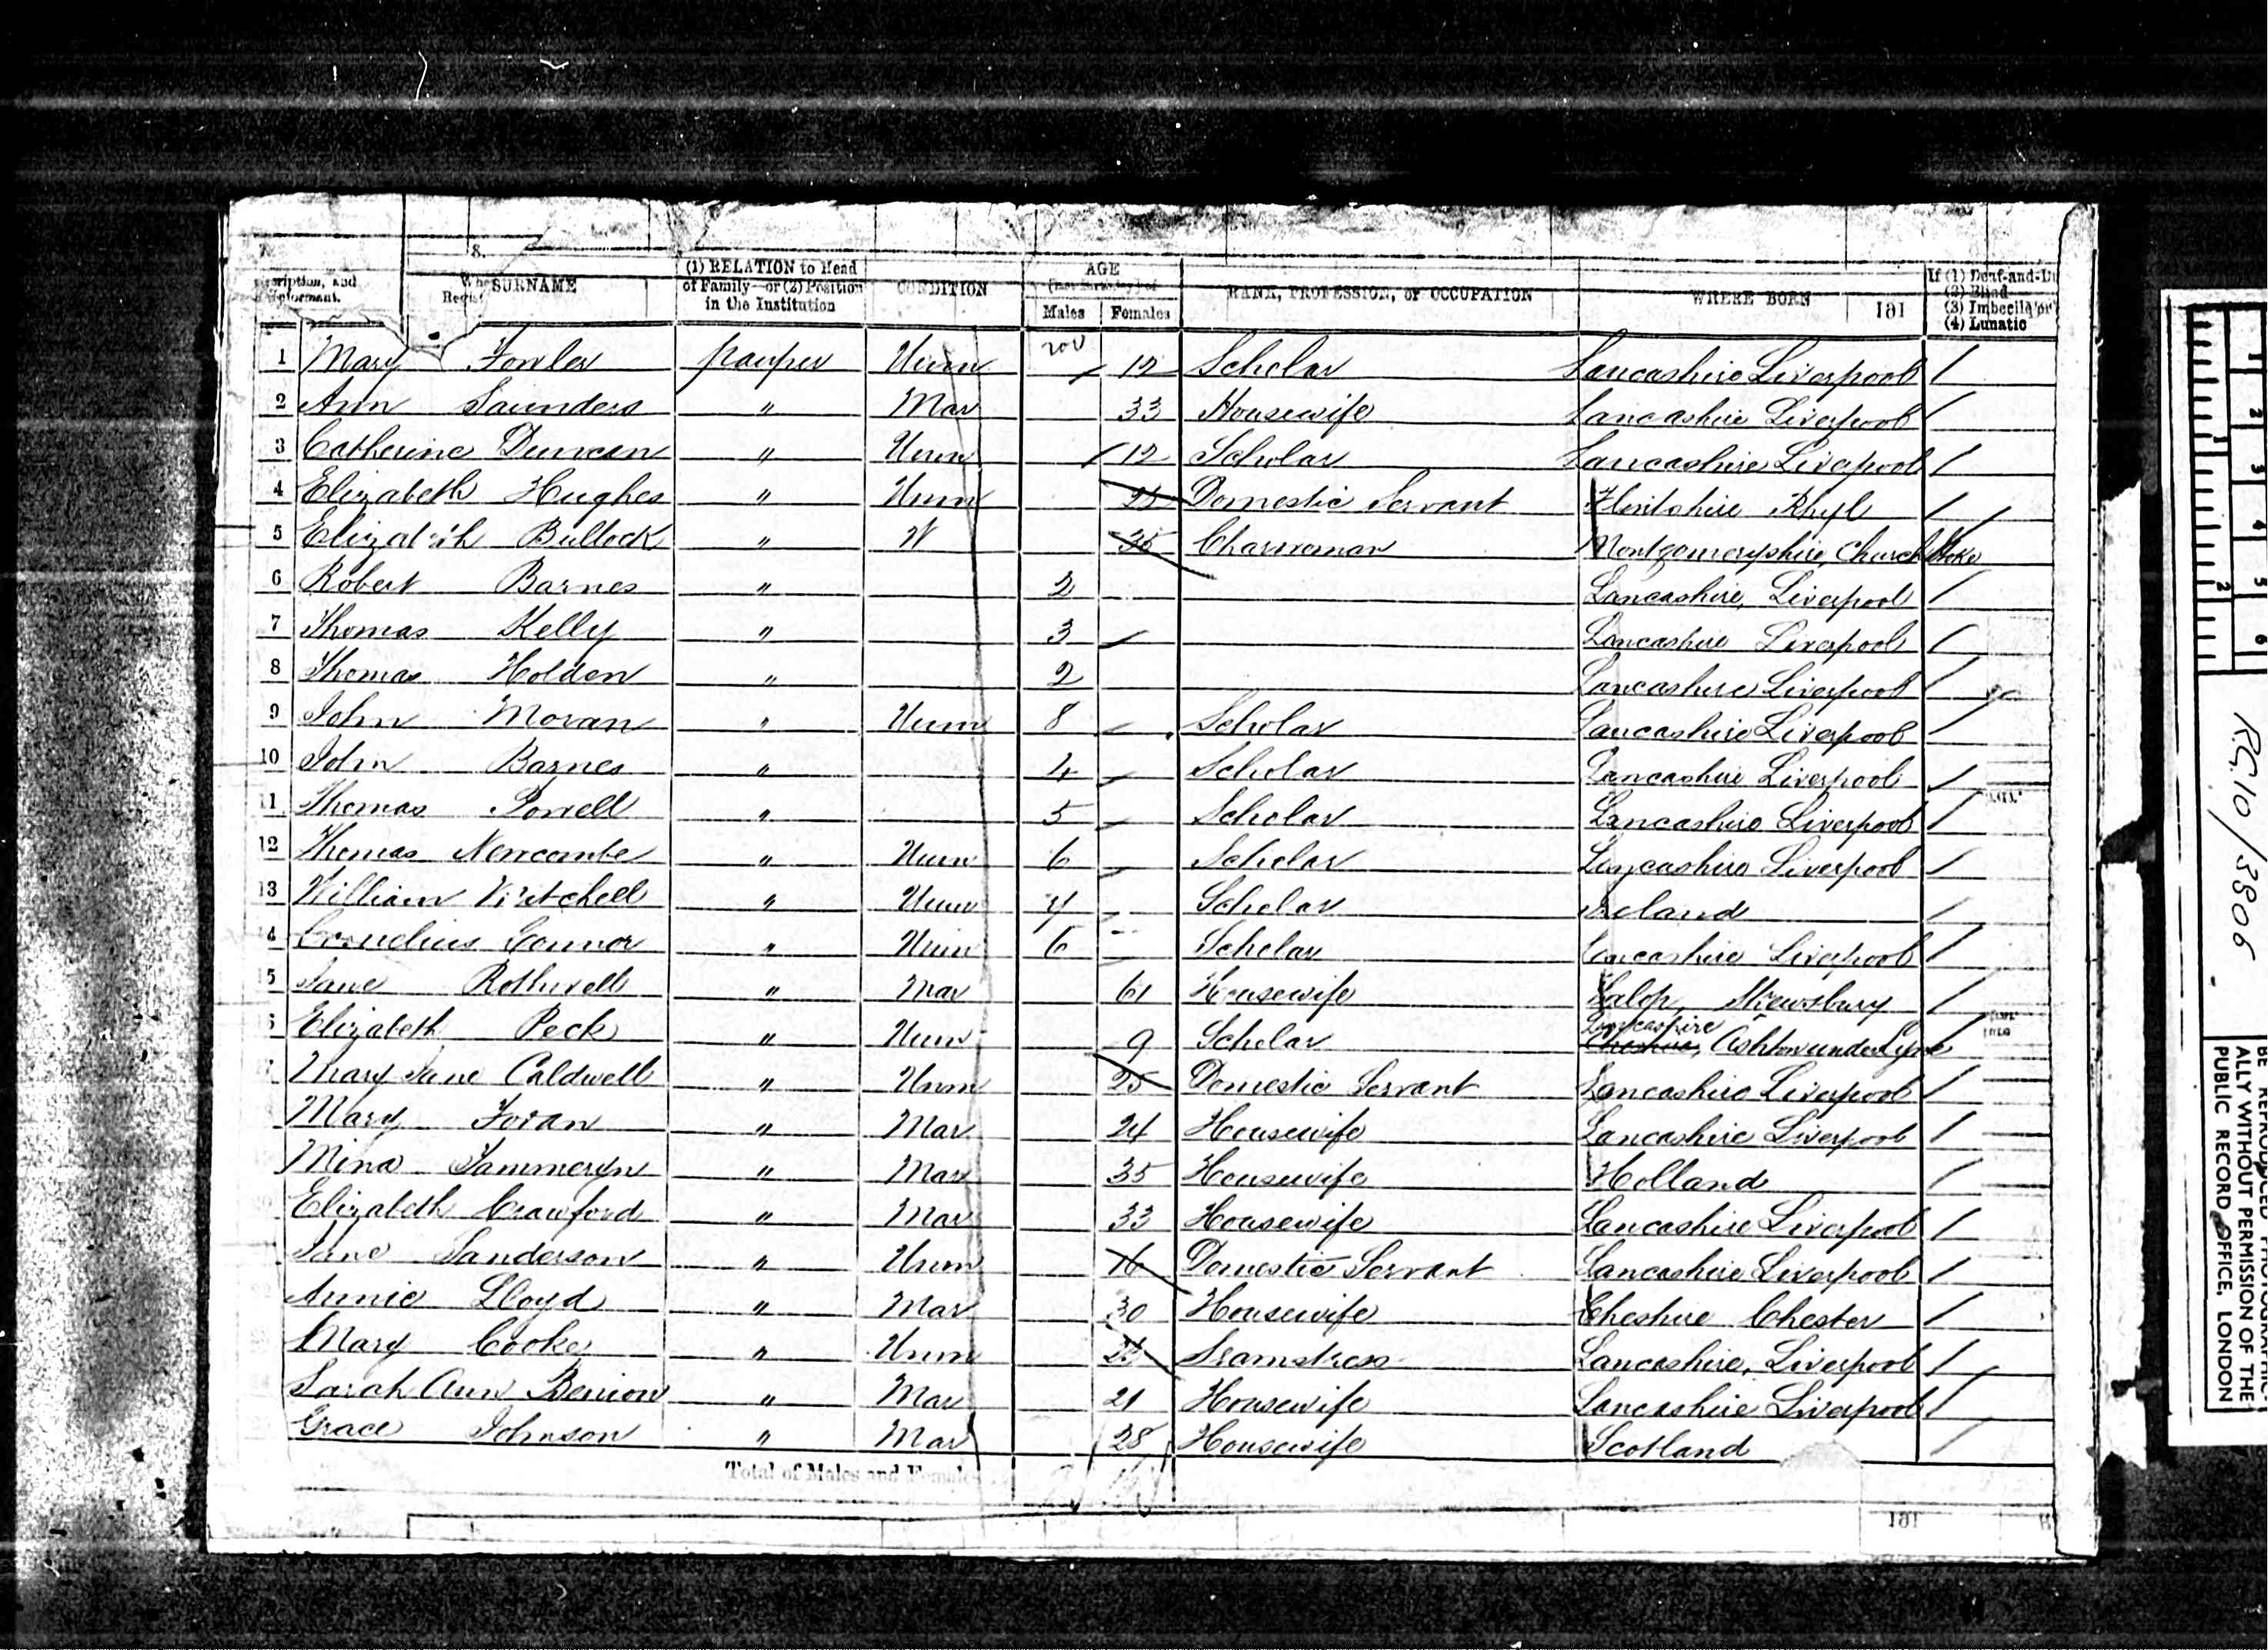 8.
SURNAME
(1) RELATION to Head
of Family—or (2) Position
in the Institution
CONDITION
AGE
Males Females
RANK, PROFESSION, or OCCUPATION
WHERE BORN
191
If (1) Deaf-and-Du
(2) Blind
(3) Imbecile or
(4) Lunatic
1 Mary Fowler pauper Unm 12 Scholar Lancashire Liverpool
2 Ann Saunders " Mar 33 Housewife Lancashire Liverpool
3 Catherine Duncan " Unm 12 Scholar Lancashire Liverpool
4 Elizabeth Hughes " Unm Domestic Servant Flintshire Rhyl
5 Elizabeth Bullock " W 35 Charwoman Montgomeryshire, Church Stoke
6 Robert Barnes " 2 Lancashire, Liverpool
7 Thomas Kelly " 3 Lancashire Liverpool
8 Thomas Holden " 2 Lancashire Liverpool
9 John Moran " Unm 8 Scholar Lancashire Liverpool
10 John Barnes " 4 Scholar Lancashire Liverpool
11 Thomas Powell " 5 Scholar Lancashire Liverpool
12 Thomas Newcombe " Unm 6 Scholar Lancashire Liverpool
13 William " Unm Scholar Ireland
4 Cornelius Connor " Unm 6 Scholar Lancashire Liverpool
5 Jane Rothwell " Mar 61 Housewife Salop, Shrewsbury
Elizabeth Peck " Unm 9 Scholar Lancashire Cheshire, Ashton under Lyne
Mary Jane Caldwell " Unm 25 Domestic Servant Lancashire Liverpool
Mary Foran " Mar 24 Housewife Lancashire Liverpool
Mina " Mar 35 Housewife Holland
Elizabeth Crawford " Mar 33 Housewife Lancashire Liverpool
Jane Sanderson " Unm 16 Domestic Servant Lancashire Liverpool
Annie Lloyd " Mar 30 Housewife Cheshire Chester
Mary Cooke " Unm Seamstress Lancashire, Liverpool
Sarah Ann Benion " Mar 21 Housewife Lancashire Liverpool
Grace Johnson " Mar 28 Housewife Scotland
Total of Males and Females
RG.10/3806
ALLY WITHOUT PERMISSION OF THE
PUBLIC RECORD OFFICE, LONDON